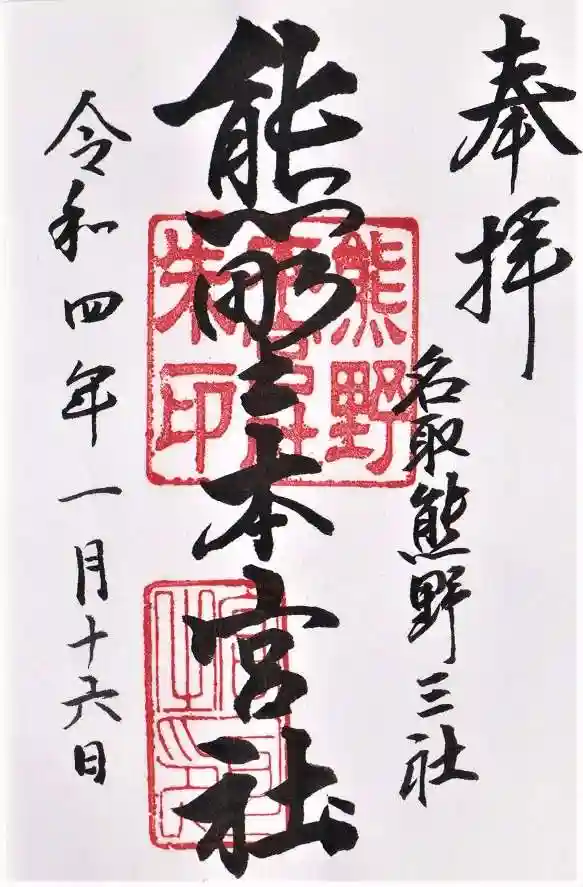 奉拝
名取熊野三社
熊野本宮社
令和四年一月十六日
熊野
朱印